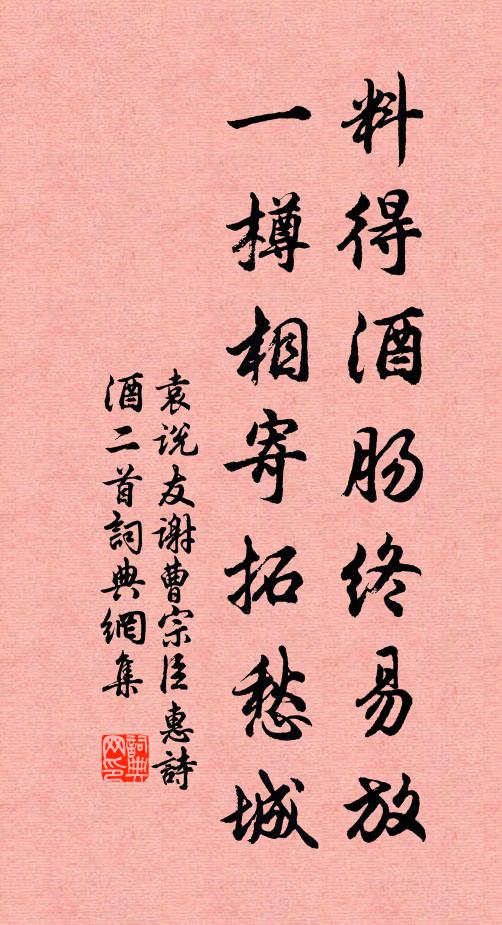 料得酒肠终易放
一樽相寄拓愁城
袁说友谢曹宗臣惠詩
酒二首詞典網集
詞典网印